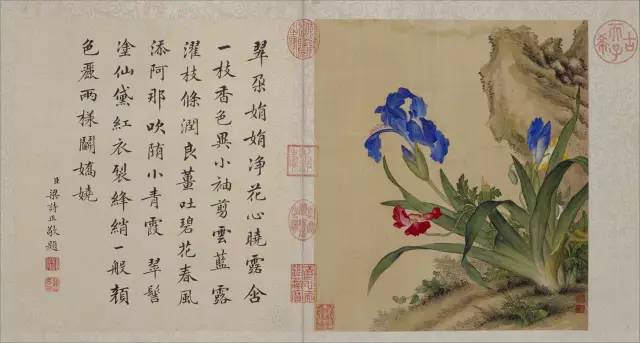 翠朶娟娟净花心曉露含
一枝香色異小袖剪雲藍 露
濯枝條潤良薑吐碧花春風
添阿那吹堕小青霞 翠髻
塗仙黛紅衣裂絳綃一般顏
色麗兩樣鬭嬌嬈
臣梁詩正敬題
古希天子